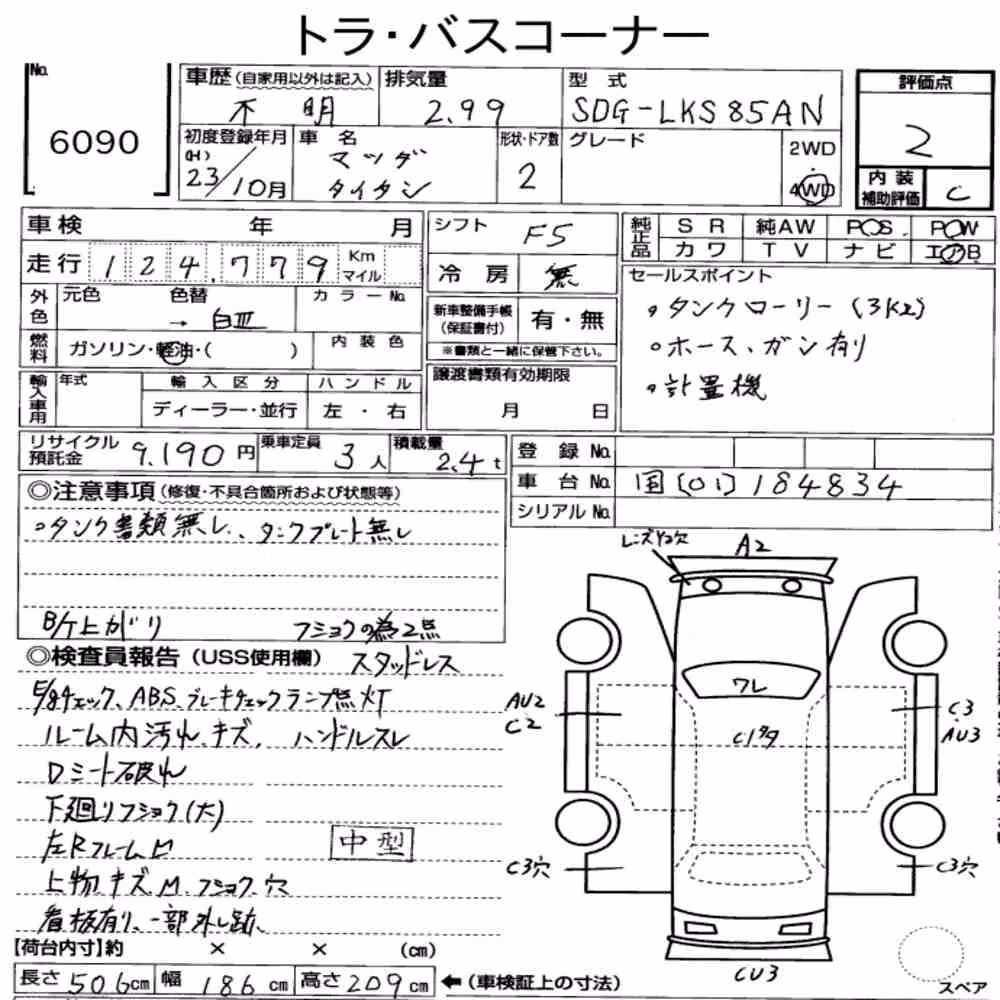 トラ・バスコーナー
No. 6090
車歴(自家用以外は記入) 不明
排気量 2.99
型式 SDG-LKS85AN
評価点 2
初度登録年月 (H) 23/10月
車名 マツダ タイタン
形状・ドア数 2
グレード
2WD
4WD
内装補助評価 C
車検 年 月
走行 124,779 Km マイル
シフト F5
冷房 無
純正品 SR 純AW P.S. P.W
カワ TV ナビ エアB
外色 元色 色替 → 白Ⅲ カラーNo.
燃料 ガソリン・軽油・( )
内装色
新車整備手帳(保証書付) 有・無
※書類と一緒に保管下さい。
セールスポイント
。タンクローリー(3KL)
。ホース、ガン有り
。計量機
輸入車用 年式 輸入区分 ハンドル
ディーラー・並行 左・右
譲渡書類有効期限
月 日
リサイクル預託金 9,190円
乗車定員 3人
積載量 2.4t
登録No.
車台No. 国[01]184834
シリアルNo.
◎注意事項(修復・不具合箇所および状態等)
。タンク書類無し、タンクプレート無し
B/ケ上がり フショクの為2点
◎検査員報告(USS使用欄) スタッドレス
E/gチェック、ABS、ブレーキチェックランプ点灯
ルーム内汚れ、キズ、ハンドルスレ
Dシート破れ
下廻りフショク(大)
左Rフレーム凹
中型
上物キズM、フショク、穴
看板有り、一部外し跡、
【荷台内寸】約 × × (cm)
長さ 506cm 幅 186cm 高さ 209cm ←(車検証上の寸法)
A2
ワレ
AU2
C2
C3
AU3
C3穴
C3穴
CU3
スペア